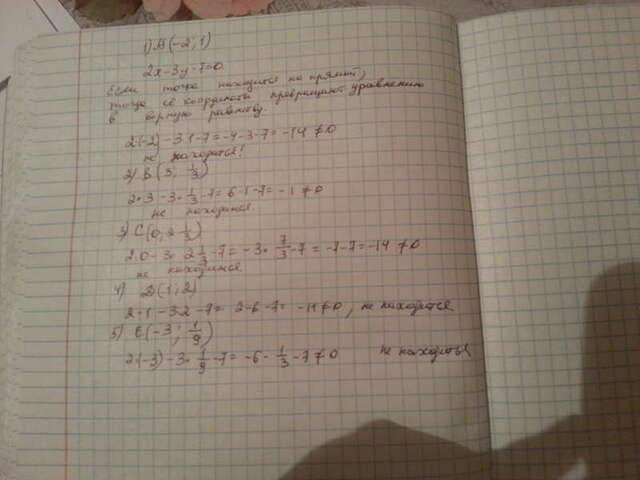 1) A(-2; 1)
2x-3y-7=0
Если точка находится на прямой,
тогда её координаты превращают уравнение
в верную равность
2(-2)-3·1-7=-4-3-7=-14≠0
не находится!
2) B (3; 1/3)
2·3-3·1/3-7=6-1-7=-1≠0
не находится
3) C(0; 2 1/3)
2·0-3·2 1/3-7=-3·7/3-7=-7-7=-14≠0
не находится
4) D (1; 2)
2·1-3·2-7=2-6-7=-11≠0, не находится
5) E(-3; 1/9)
2(-3)-3·1/9-7=-6-1/3-7≠0 не находится